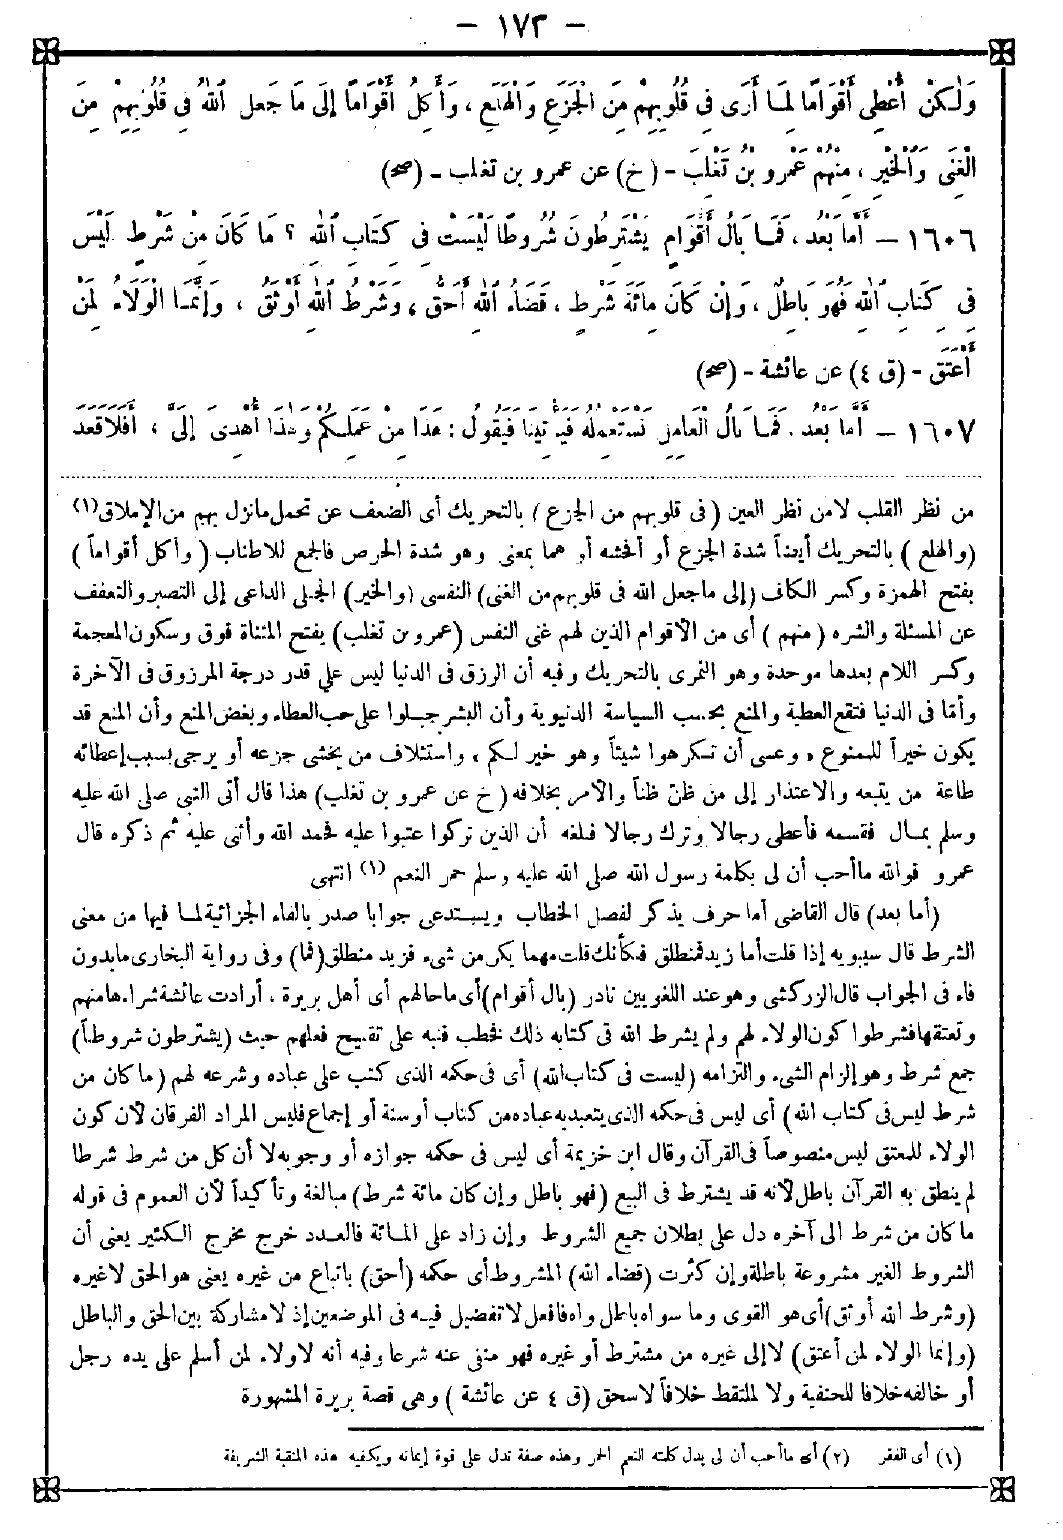 - ١٧٣ -
وَلٰكِنْ أُعْطِى أَقْوَامًا لِمَا أَرَى فِى قُلُوبِهِمْ مِنَ الْجَزَعِ وَالْهَلَعِ ، وَأَكِلُ أَقْوَامًا إِلَى مَا جَعَلَ ٱللهُ فِى قُلُوبِهِمْ مِنَ
الْغِنَى وَالْخَيْرِ ، مِنْهُمْ عَمْرُو بْنُ تَغْلِبَ - (خ) عن عمرو بن تغلب - (صح)
١٦٠٦ - أَمَّا بَعْدُ ، فَمَا بَالُ أَقْوَامٍ يَشْتَرِطُونَ شُرُوطًا لَيْسَتْ فِى كِتَابِ ٱللهِ ؟ مَا كَانَ مِنْ شَرْطٍ لَيْسَ
فِى كِتَابِ ٱللهِ فَهُوَ بَاطِلٌ ، وَإِنْ كَانَ مِائَةَ شَرْطٍ ، قَضَاءُ ٱللهِ أَحَقُّ ، وَشَرْطُ ٱللهِ أَوْثَقُ ، وَإِنَّمَا الْوَلَاءُ لِمَنْ
أَعْتَقَ - (ق ٤) عن عائشة - (صح)
١٦٠٧ - أَمَّا بَعْدُ . فَمَا بَالُ الْعَامِلِ نَسْتَعْمِلُهُ فَيَأْتِينَا فَيَقُولُ : هٰذَا مِنْ عَمَلِكُمْ وَهٰذَا أُهْدِىَ إِلَىَّ ، أَفَلَا قَعَدَ
من نظر القلب لامن نظر العين (فى قلوبهم من الجزع) بالتحريك أى الضعف عن تحمل مانزل بهم من الإملاق(١)
(والهلع) بالتحريك أيضاً شدة الجزع أو أفحشه أو هما بمعنى وهو شدة الحرص فالجمع للاطناب (وأكل أقواماً)
بفتح الهمزة وكسر الكاف (إلى ماجعل الله فى قلوبهم من الغنى) النفسى (والخير) الجبلى الداعى إلى التصبر والتعفف
عن المسئلة والشره (منهم) أى من الأقوام الذين لهم غنى النفس (عمرو بن تغلب) بفتح المثناة فوق وسكون المعجمة
وكسر اللام بعدها موحدة وهو النمرى بالتحريك وفيه أن الرزق فى الدنيا ليس على قدر درجة المرزوق فى الآخرة
وأما فى الدنيا فتقع العطية والمنع بحسب السياسة الدنيوية وأن البشر جبلوا على حب العطاء وبغض المنع وأن المنع قد
يكون خيراً للممنوع ، وعسى أن تكرهوا شيئاً وهو خير لكم ، واستئلاف من يخشى جزعه أو يرجى بسبب إعطائه
طاعة من يتبعه والاعتذار إلى من ظن ظناً والأمر بخلافه (خ عن عمرو بن تغلب) هذا قال أتى النبى صلى الله عليه
وسلم بمال فقسمه فأعطى رجالا وترك رجالا فبلغه أن الذين تركوا عتبوا عليه فحمد الله وأثنى عليه ثم ذكره قال
عمرو فوالله ماأحب أن لى بكلمة رسول الله صلى الله عليه وسلم حمر النعم (١) انتهى
(أما بعد) قال القاضى أما حرف يذكر لفصل الخطاب ويستدعى جوابا صدر بالفاء الجزائية لما فيها من معنى
الشرط قال سيبويه إذا قلت أما زيد فمنطلق فكأنك قلت مهما يكن من شىء فزيد منطلق (فما) وفى رواية البخارى مابدون
فاء فى الجواب قال الزركشى وهو عند اللغويين نادر (بال أقوام) أى ماحالهم أى أهل بريرة ، أرادت عائشة شراءها منهم
وتعتقها فشرطوا كون الولاء لهم ولم يشرط الله فى كتابه ذلك فخطب فنبه على تقبيح فعلهم حيث (يشترطون شروطاً)
جمع شرط وهو إلزام الشىء والتزامه (ليست فى كتاب الله) أى فى حكمه الذى كتب على عباده وشرعه لهم (ما كان من
شرط ليس فى كتاب الله) أى ليس فى حكمه الذى يتعبد به عباده من كتاب أو سنة أو إجماع فليس المراد الفرقان لأن كون
الولاء للمعتق ليس منصوصاً فى القرآن وقال ابن خزيمة أى ليس فى حكمه جوازه أو وجوبه لا أن كل من شرط شرطا
لم ينطق به القرآن باطل لأنه قد يشترط فى البيع (فهو باطل وإن كان مائة شرط) مبالغة وتأكيداً لأن العموم فى قوله
ما كان من شرط الى آخره دل على بطلان جميع الشروط وإن زاد على المائة فالعدد خرج مخرج الكثير يعنى أن
الشروط الغير مشروعة باطلة وإن كثرت (قضاء الله) المشروط أى حكمه (أحق) باتباع من غيره يعنى هو الحق لاغيره
(وشرط الله أوثق) أى هو القوى وما سواه باطل واه فافعل لا تفضيل فيه فى الموضعين إذ لا مشاركة بين الحق والباطل
(وإنما الولاء لمن أعتق) لاإلى غيره من مشترط أو غيره فهو منفى عنه شرعا وفيه أنه لاولاء لمن أسلم على يده رجل
أو خالفه خلافا للحنفية ولا لملتقط خلافاً لاسحق (ق ٤ عن عائشة) وهى قصة بريرة المشهورة
(١) أى الفقر (٢) أى ماأحب أن لى بدل كلمته النعم الحمر وهذه صفة تدل على قوة إيمانه ويكفيه هذه المنقبة الشريفة